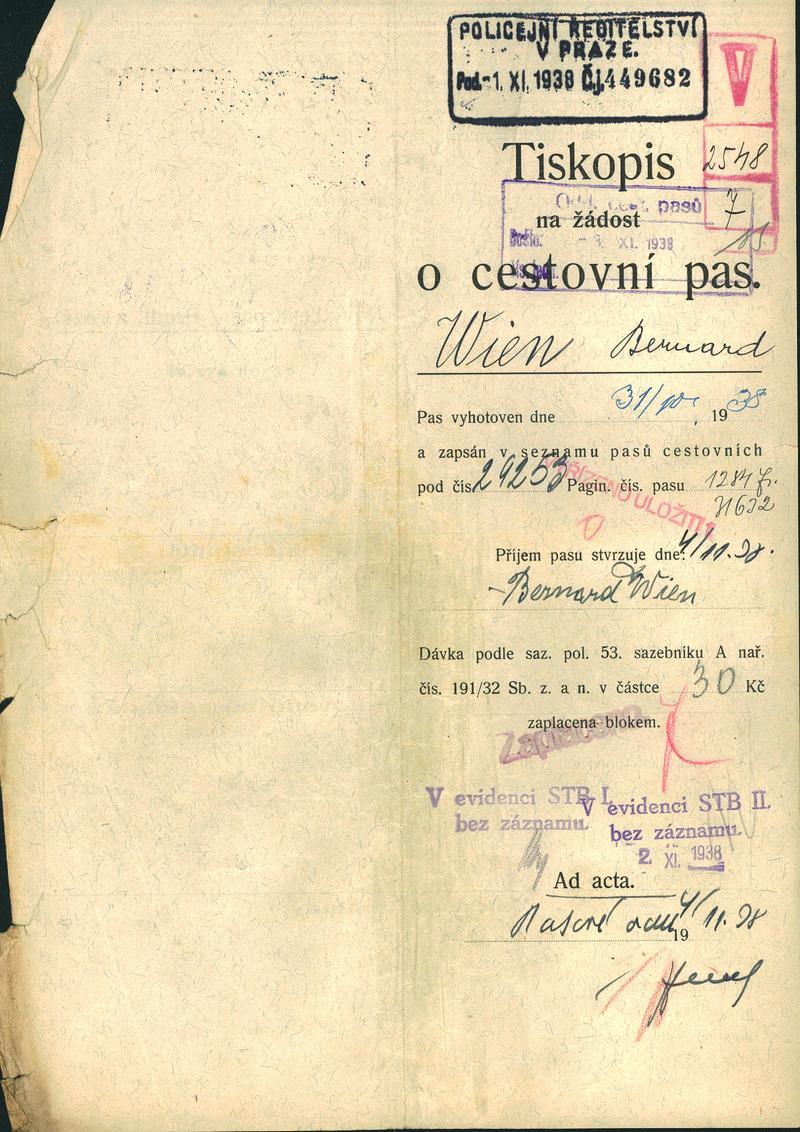 POLICEJNÍ ŘEDITELSTVÍ
V PRAZE.
Pod. -1. XI. 1938 Čj. 449682
V
Tiskopis
2548
Odd. cest. pasů
7
na žádost
Došlo: -3. XI. 1938
o cestovní pas.
Wien Bernard
Pas vyhotoven dne 31/10. 1938
a zapsán v seznamu pasů cestovních
pod čís 29253 Pagin. čís. pasu 1284 fr.
31632
ULOŽITI
Příjem pasu stvrzuje dne: 4/11.38.
Bernard Wien
Dávka podle saz. pol. 53. sazebníku A nař.
čís. 191/32 Sb. z. a n. v částce 30 Kč
zaplacena blokem.
Zaplaceno
V evidenci STB I.
bez záznamu.
V evidenci STB II.
bez záznamu.
2. XI. 1938
Ad acta.
4/11.38
19